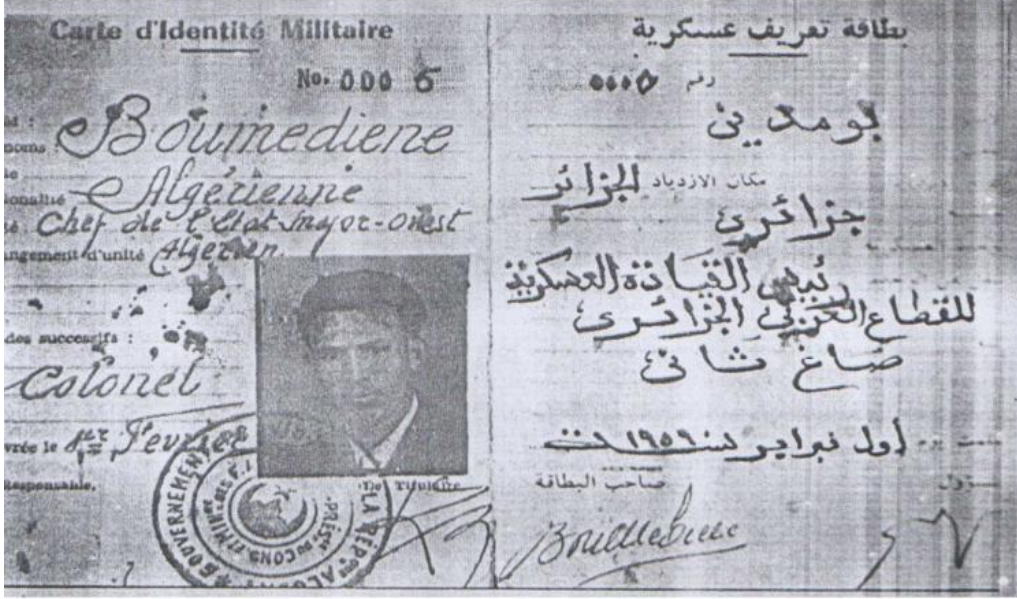 Carte d'Identité Militaire
No. 000 5
Boumediene
Algérienne
Chef de l'Etat-major-Ouest
angement d'unité Algérien
des successifs :
Colonel
vrée le 1er Février
Responsable,
Titulaire
GOUVERNEMENT
بطاقة تعريف عسكرية
رقم ٥٠٠٠
بومدين
مكان الازدياد الجزائر
جزائري
رئيس القيادة العسكرية
للقطاع الغربي الجزائري
صاغ ثاني
أول فبراير سنة ١٩٥٩
صاحب البطاقة
Boumediene